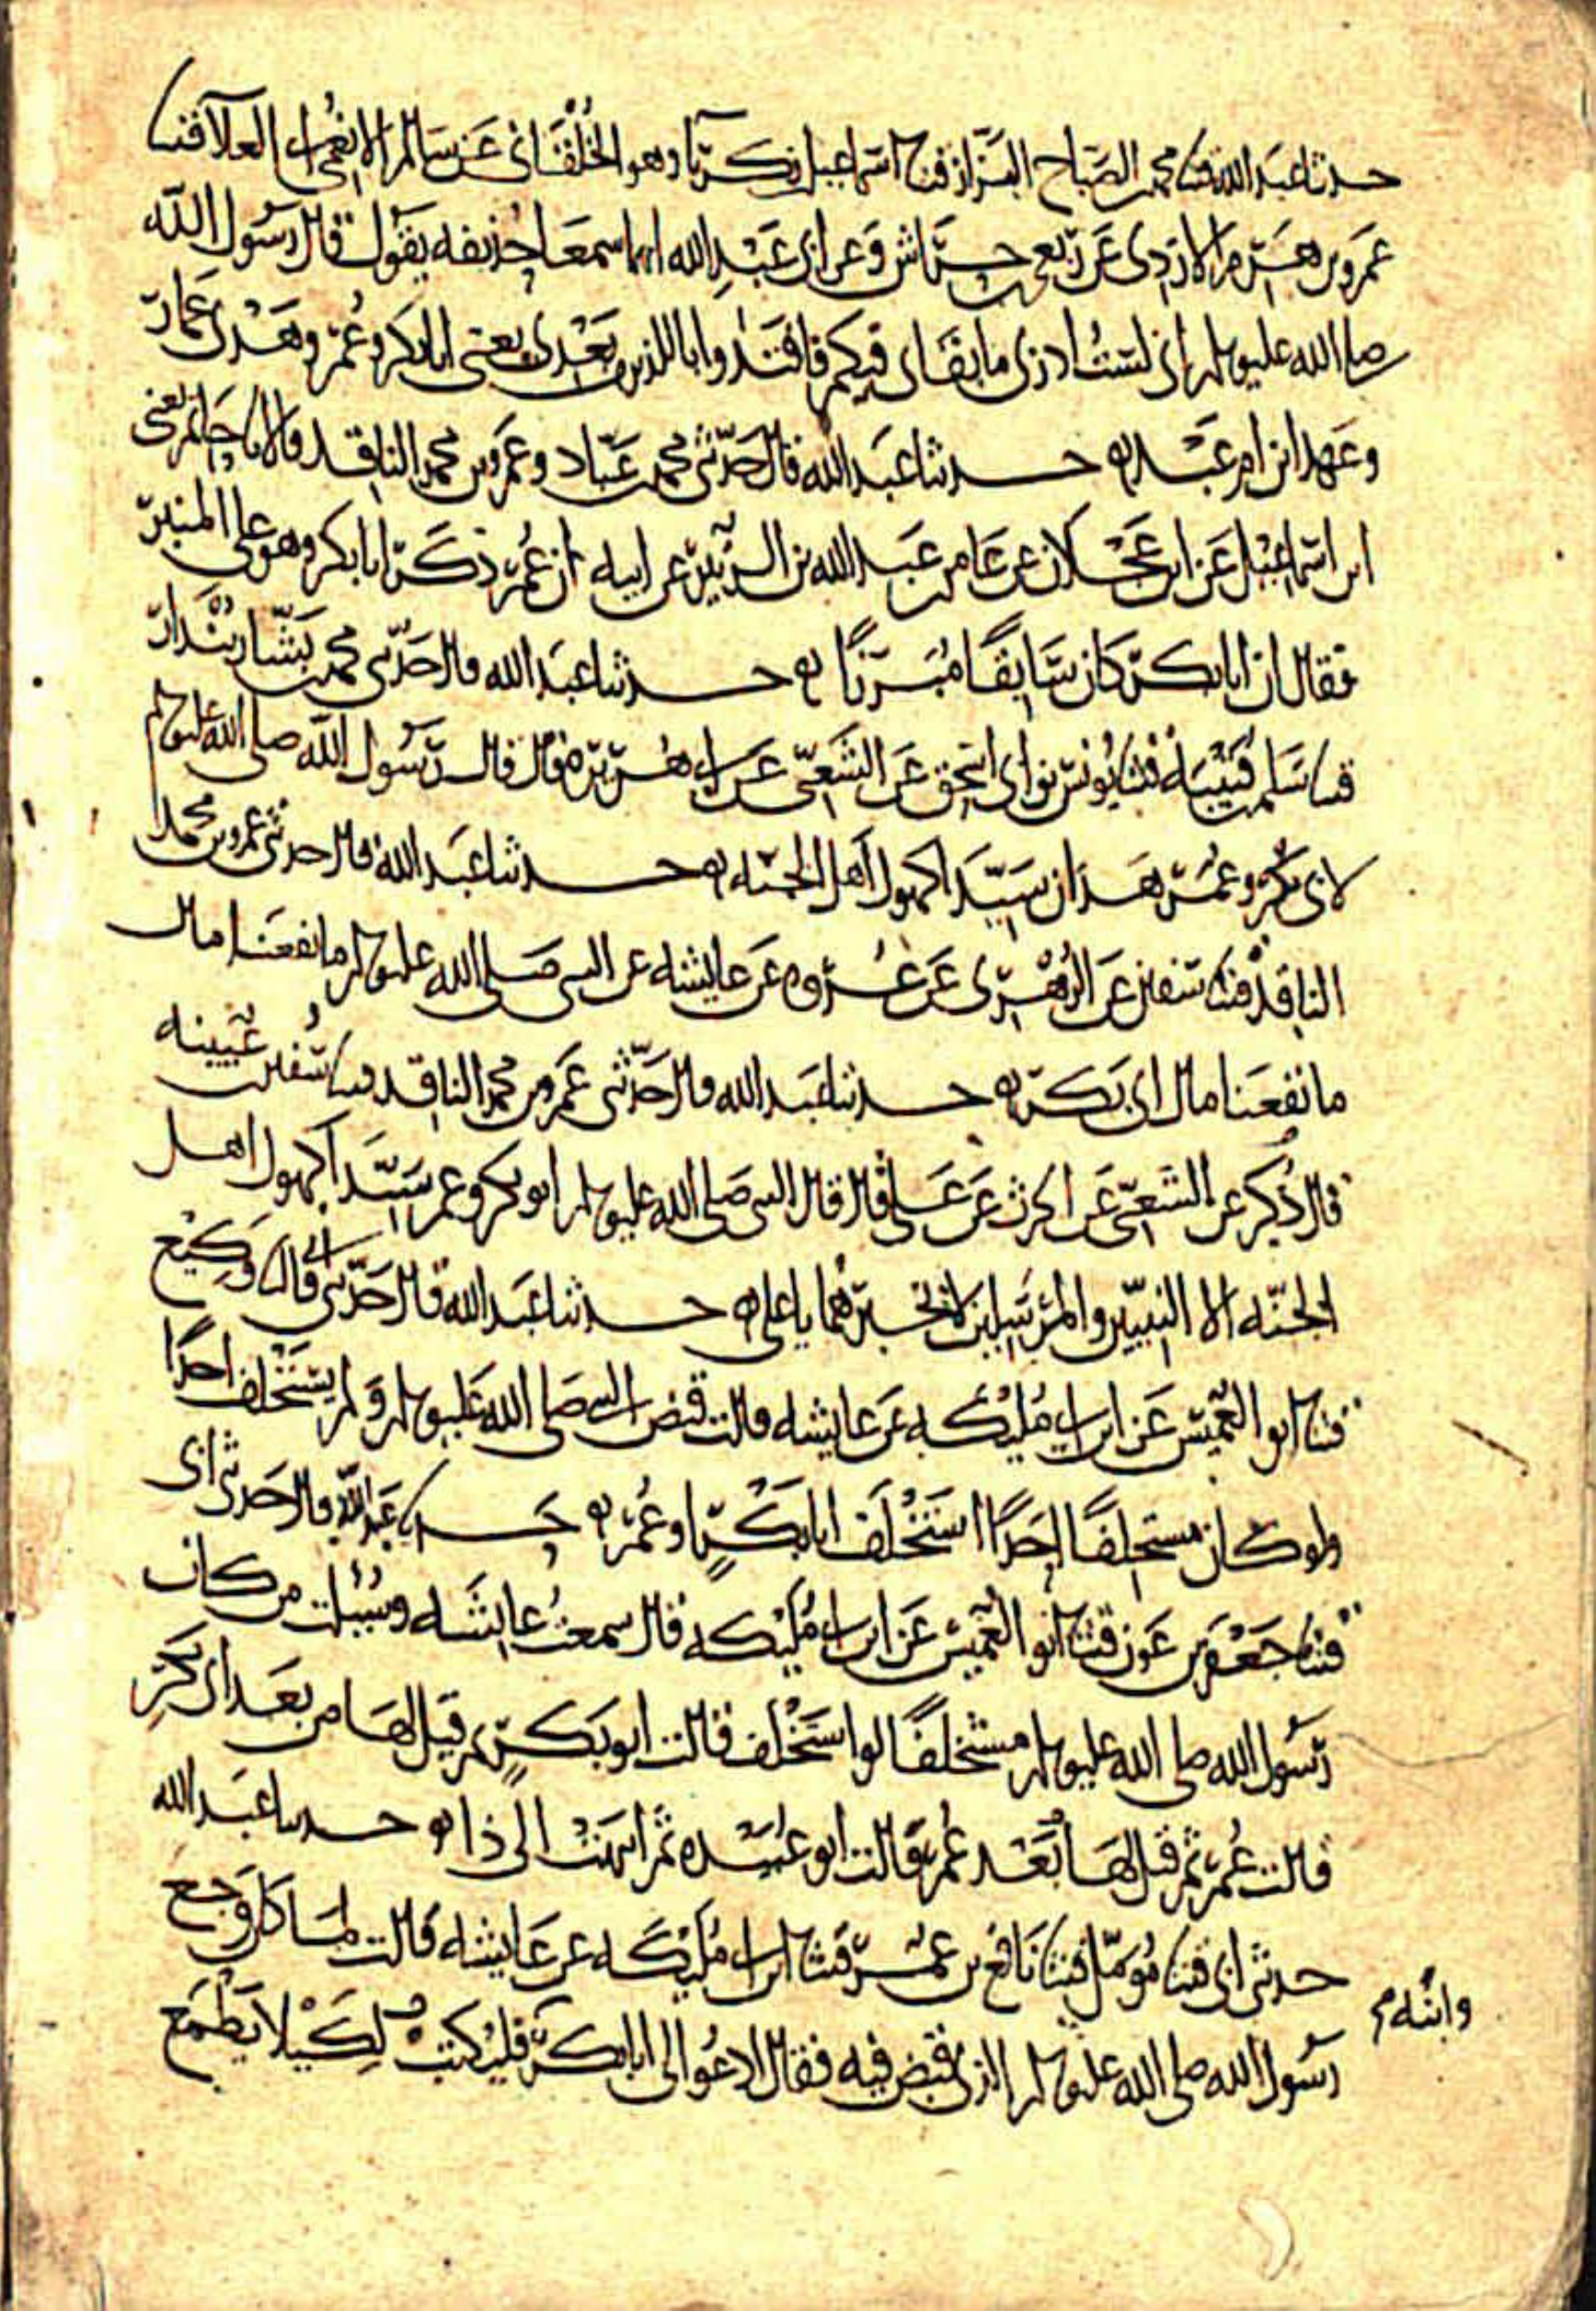 حدثنا عبد الله قثنا محمد بن الصباح البزاز قثنا اسماعيل بن زكريا وهو الخلقاني عن سالم الانعمي ابي العلا قثنا
عمرو بن هرم الازدي عن ربعي بن حراش وعن ابي عبد الله انهما سمعا حذيفه يقول قال رسول الله
صلى الله عليه وسلم اني لست ادري ما بقاي فيكم فاقتدوا باللذين بعدي يعني ابا بكر وعمر وهدي عمار
وعهد ابن ام عبد حدثنا عبد الله قال حدثني محمد بن عباد وعمرو بن محمد الناقد قالا نا حاتم يعني
ابن اسماعيل عن ابن عجلان عن عامر بن عبد الله بن الزبير عن ابيه ان عمر ذكر ابا بكر وهو على المنبر
فقال ان ابا بكر كان سابقا مبرزا حدثنا عبد الله قال حدثني محمد بن بشار بندار
قثنا سلم بن قتيبه قثنا يونس بن ابي اسحق عن الشعبي عن ابي هريره قال قال رسول الله صلى الله عليه وسلم
لابي بكر وعمر هذان سيدا كهول اهل الجنه حدثنا عبد الله قال حدثني عمرو بن محمد
الناقد قثنا سفين عن الزهري عن عروه عن عايشه عن النبي صلى الله عليه وسلم ما نفعنا مال
ما نفعنا مال ابي بكر حدثنا عبد الله قال حدثني عمرو بن محمد الناقد قثنا سفين بن عيينه
قال ذكر عن الشعبي عن الحرث عن علي قال قال النبي صلى الله عليه وسلم ابو بكر وعمر سيدا كهول اهل
الجنه الا النبيين والمرسلين لا تخبرهما يا علي حدثنا عبد الله قال حدثني ابي قال نا وكيع
قثنا ابو العميس عن ابن ابي مليكه عن عايشه قالت قبض النبي صلى الله عليه وسلم ولم يستخلف احدا
ولو كان مستخلفا احدا استخلف ابا بكر او عمر حدثنا عبد الله قال حدثني ابي
قثنا جعفر بن عون قثنا ابو العميس عن ابن ابي مليكه قال سمعت عايشه وسئلت من كان
رسول الله صلى الله عليه وسلم مستخلفا لو استخلف قالت ابو بكر ثم قيل لها من بعد ابي بكر
قالت عمر ثم قيل لها من بعد عمر قالت ابو عبيده ثم انتهت الى ذا حدثنا عبد الله
حدثني ابي قثنا مومل قثنا نافع بن عمر قثنا ابن ابي مليكه عن عايشه قالت لما كان وجع
رسول الله صلى الله عليه وسلم الذي قبض فيه فقال ادعوا لي ابا بكر فليكتب لكيلا يطمع
وابنه